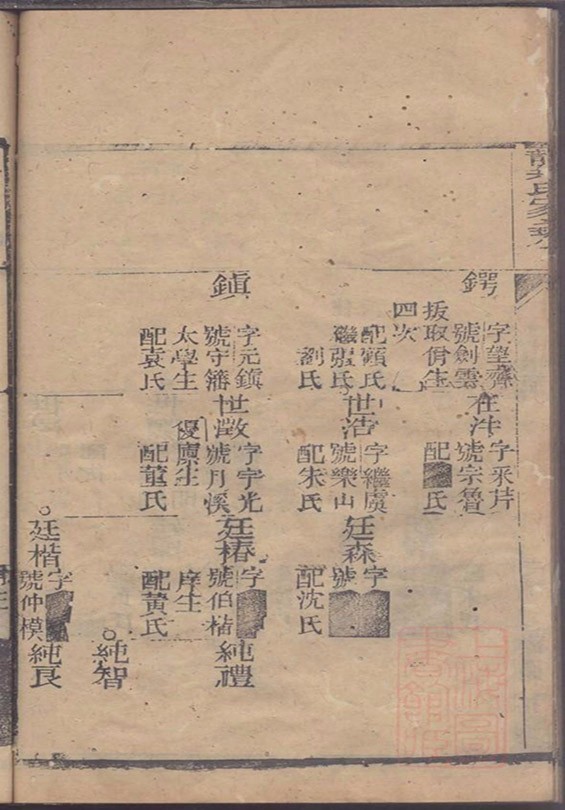 鍔
字望齋
號劍雲
拔取佾生
四次
在泮
字采芹
號宗魯
配 氏
配顧氏
繼張氏
劉氏
世浩
字繼虞
號樂山
配朱氏
廷森
字
號
配沈氏
鎮
字元鎮
號守籓
太學生
配袁氏
世澂
字宇光
號月溪
優廩生
配董氏
廷椿
字
號伯楷
庠生
配黃氏
純禮
純智
廷楷
字
號仲模
純良